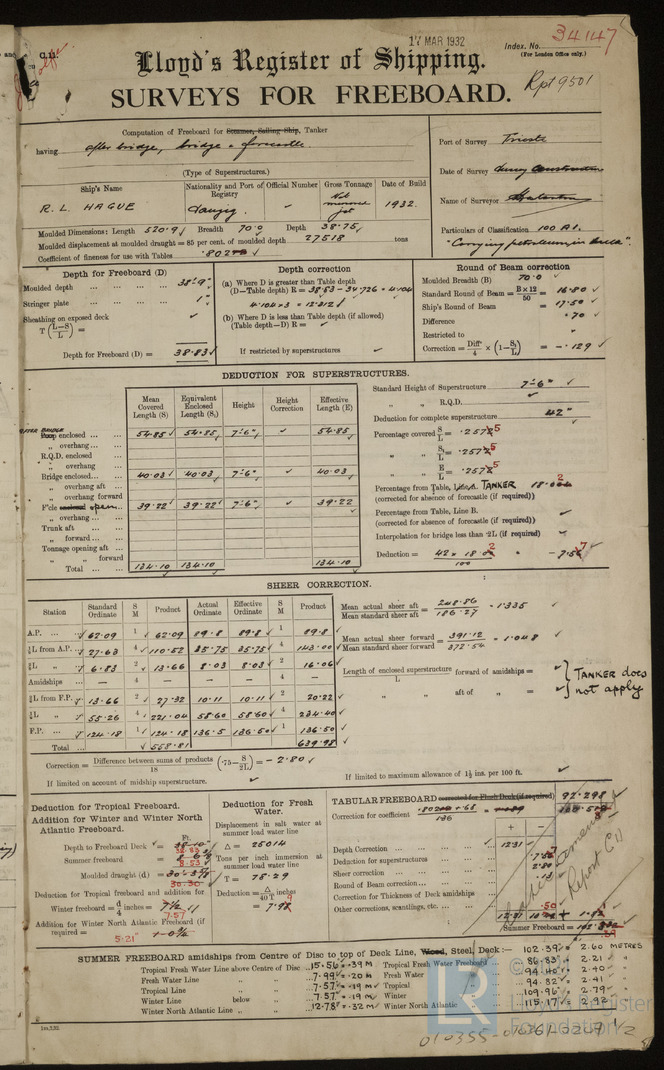 17 MAR 1932
Index. No. 34147
(For London Office only.)
C.11.
Lloyd's Register of Shipping.
Rpt 9501
SURVEYS FOR FREEBOARD.
Computation of Freeboard for Steamer, Sailing Ship, Tanker
having after bridge, bridge & forecastle
(Type of Superstructures.)
Port of Survey Trieste
Date of Survey
Name of Surveyor
Particulars of Classification 100 A1.
"Carrying petroleum in bulk".
Ship's Name
Nationality and Port of Registry
Official Number
Gross Tonnage
Date of Build
R. L. HAGUE
Danzig
1932.
Moulded Dimensions: Length 520.9 Breadth 70.0 Depth 38.75
Moulded displacement at moulded draught = 85 per cent. of moulded depth 27518 tons
Coefficient of fineness for use with Tables
Depth for Freeboard (D)
Moulded depth 38'-9"
Stringer plate 1"
Sheathing on exposed deck
T (L-S/L) =
Depth for Freeboard (D) = 38.83
Depth correction
(a) Where D is greater than Table depth
(D—Table depth) R = 38.83 - 34.726 = 4.104
4.104 × 3 = 12.312
(b) Where D is less than Table depth (if allowed)
(Table depth—D) R =
If restricted by superstructures
Round of Beam correction
Moulded Breadth (B) 70.0
Standard Round of Beam = B×12/50 = 16.80
Ship's Round of Beam = 17.50
Difference .70
Restricted to
Correction = Diff/4 × (1 - S₁/L) = - .129
DEDUCTION FOR SUPERSTRUCTURES.
Mean Covered Length (S)
Equivalent Enclosed Length (S₁)
Height
Height Correction
Effective Length (E)
AFTER BRIDGE
Poop enclosed 54.85 54.85 7'-6" 54.85
„ overhang
R.Q.D. enclosed
„ overhang
Bridge enclosed 40.03 40.03 7'-6" 40.03
„ overhang aft
„ overhang forward
F'cle enclosed open 39.22 39.22 7'-6" 39.22
„ overhang
Trunk aft
„ forward
Tonnage opening aft
„ „ forward
Total 134.10 134.10 134.10
Standard Height of Superstructure 7'-6"
„ „ R.Q.D.
Deduction for complete superstructure 42"
Percentage covered S/L = .2575
„ „ S₁/L = .2575
„ „ E/L = .2575
Percentage from Table, Line A. TANKER
(corrected for absence of forecastle (if required))
Percentage from Table, Line B.
(corrected for absence of forecastle (if required))
Interpolation for bridge less than .2L (if required)
Deduction =
SHEER CORRECTION.
Station
Standard Ordinate
S M
Product
Actual Ordinate
Effective Ordinate
S M
Product
A.P. 62.09 1 62.09 89.8 89.8 1 89.8
⅙L from A.P. 27.63 4 110.52 35.75 35.75 4 143.00
⅓L „ 6.83 2 13.66 8.03 8.03 2 16.06
Amidships — 4 — — — 4 —
⅓L from F.P. 13.66 2 27.32 10.11 10.11 2 20.22
⅙L „ 55.26 4 221.04 58.60 58.60 4 234.40
F.P. 124.18 1 124.18 136.5 136.50 1 136.50
Total 558.81 639.98
Mean actual sheer aft / Mean standard sheer aft = 248.86 / 186.27 = 1.335
Mean actual sheer forward / Mean standard sheer forward = 391.12 / 372.54 = 1.048
Length of enclosed superstructure / L forward of amidships =
„ „ aft of „ =
TANKER does not apply
Correction = Difference between sums of products / 18 (.75 - S/2L) = - 2.80
If limited on account of midship superstructure.
If limited to maximum allowance of 1½ ins. per 100 ft.
Deduction for Tropical Freeboard.
Addition for Winter and Winter North Atlantic Freeboard.
Ft.
Depth to Freeboard Deck = 38.83
Summer freeboard = 8.53
Moulded draught (d) = 30.30
Deduction for Tropical freeboard and addition for
Winter freeboard = d/4 inches = 7.57
Addition for Winter North Atlantic Freeboard (if required = 5.21"
Deduction for Fresh Water.
Displacement in salt water at summer load water line
Δ = 25014
Tons per inch immersion at summer load water line
T = 78.29
Deduction = Δ/40T inches
TABULAR FREEBOARD corrected for Flush Deck (if required) 92.298
Correction for coefficient
+ -
Depth Correction 12.31
Deduction for superstructures
Sheer correction
Round of Beam correction .13
Correction for Thickness of Deck amidships
Other corrections, scantlings, etc. .50
Summer Freeboard =
Report C 11
SUMMER FREEBOARD amidships from Centre of Disc to top of Deck Line, Wood, Steel, Deck:— 102.39 = 2.60 METRES
Tropical Fresh Water Line above Centre of Disc 15.56 = .39 M
Fresh Water Line „ „ 7.99 = .20 M
Tropical Line „ „ 7.57 = .19 M
Winter Line below „ 7.57 = .19 M
Winter North Atlantic Line „ „ 12.78 = .32 M
Tropical Fresh Water Freeboard 86.83 = 2.21 "
Fresh Water „ 94.40 = 2.40 "
Tropical „ 94.82 = 2.41 "
Winter „ 109.96 = 2.79 "
Winter North Atlantic „ 115.17 = 2.92 "
LR
© Lloyd's Register Foundation